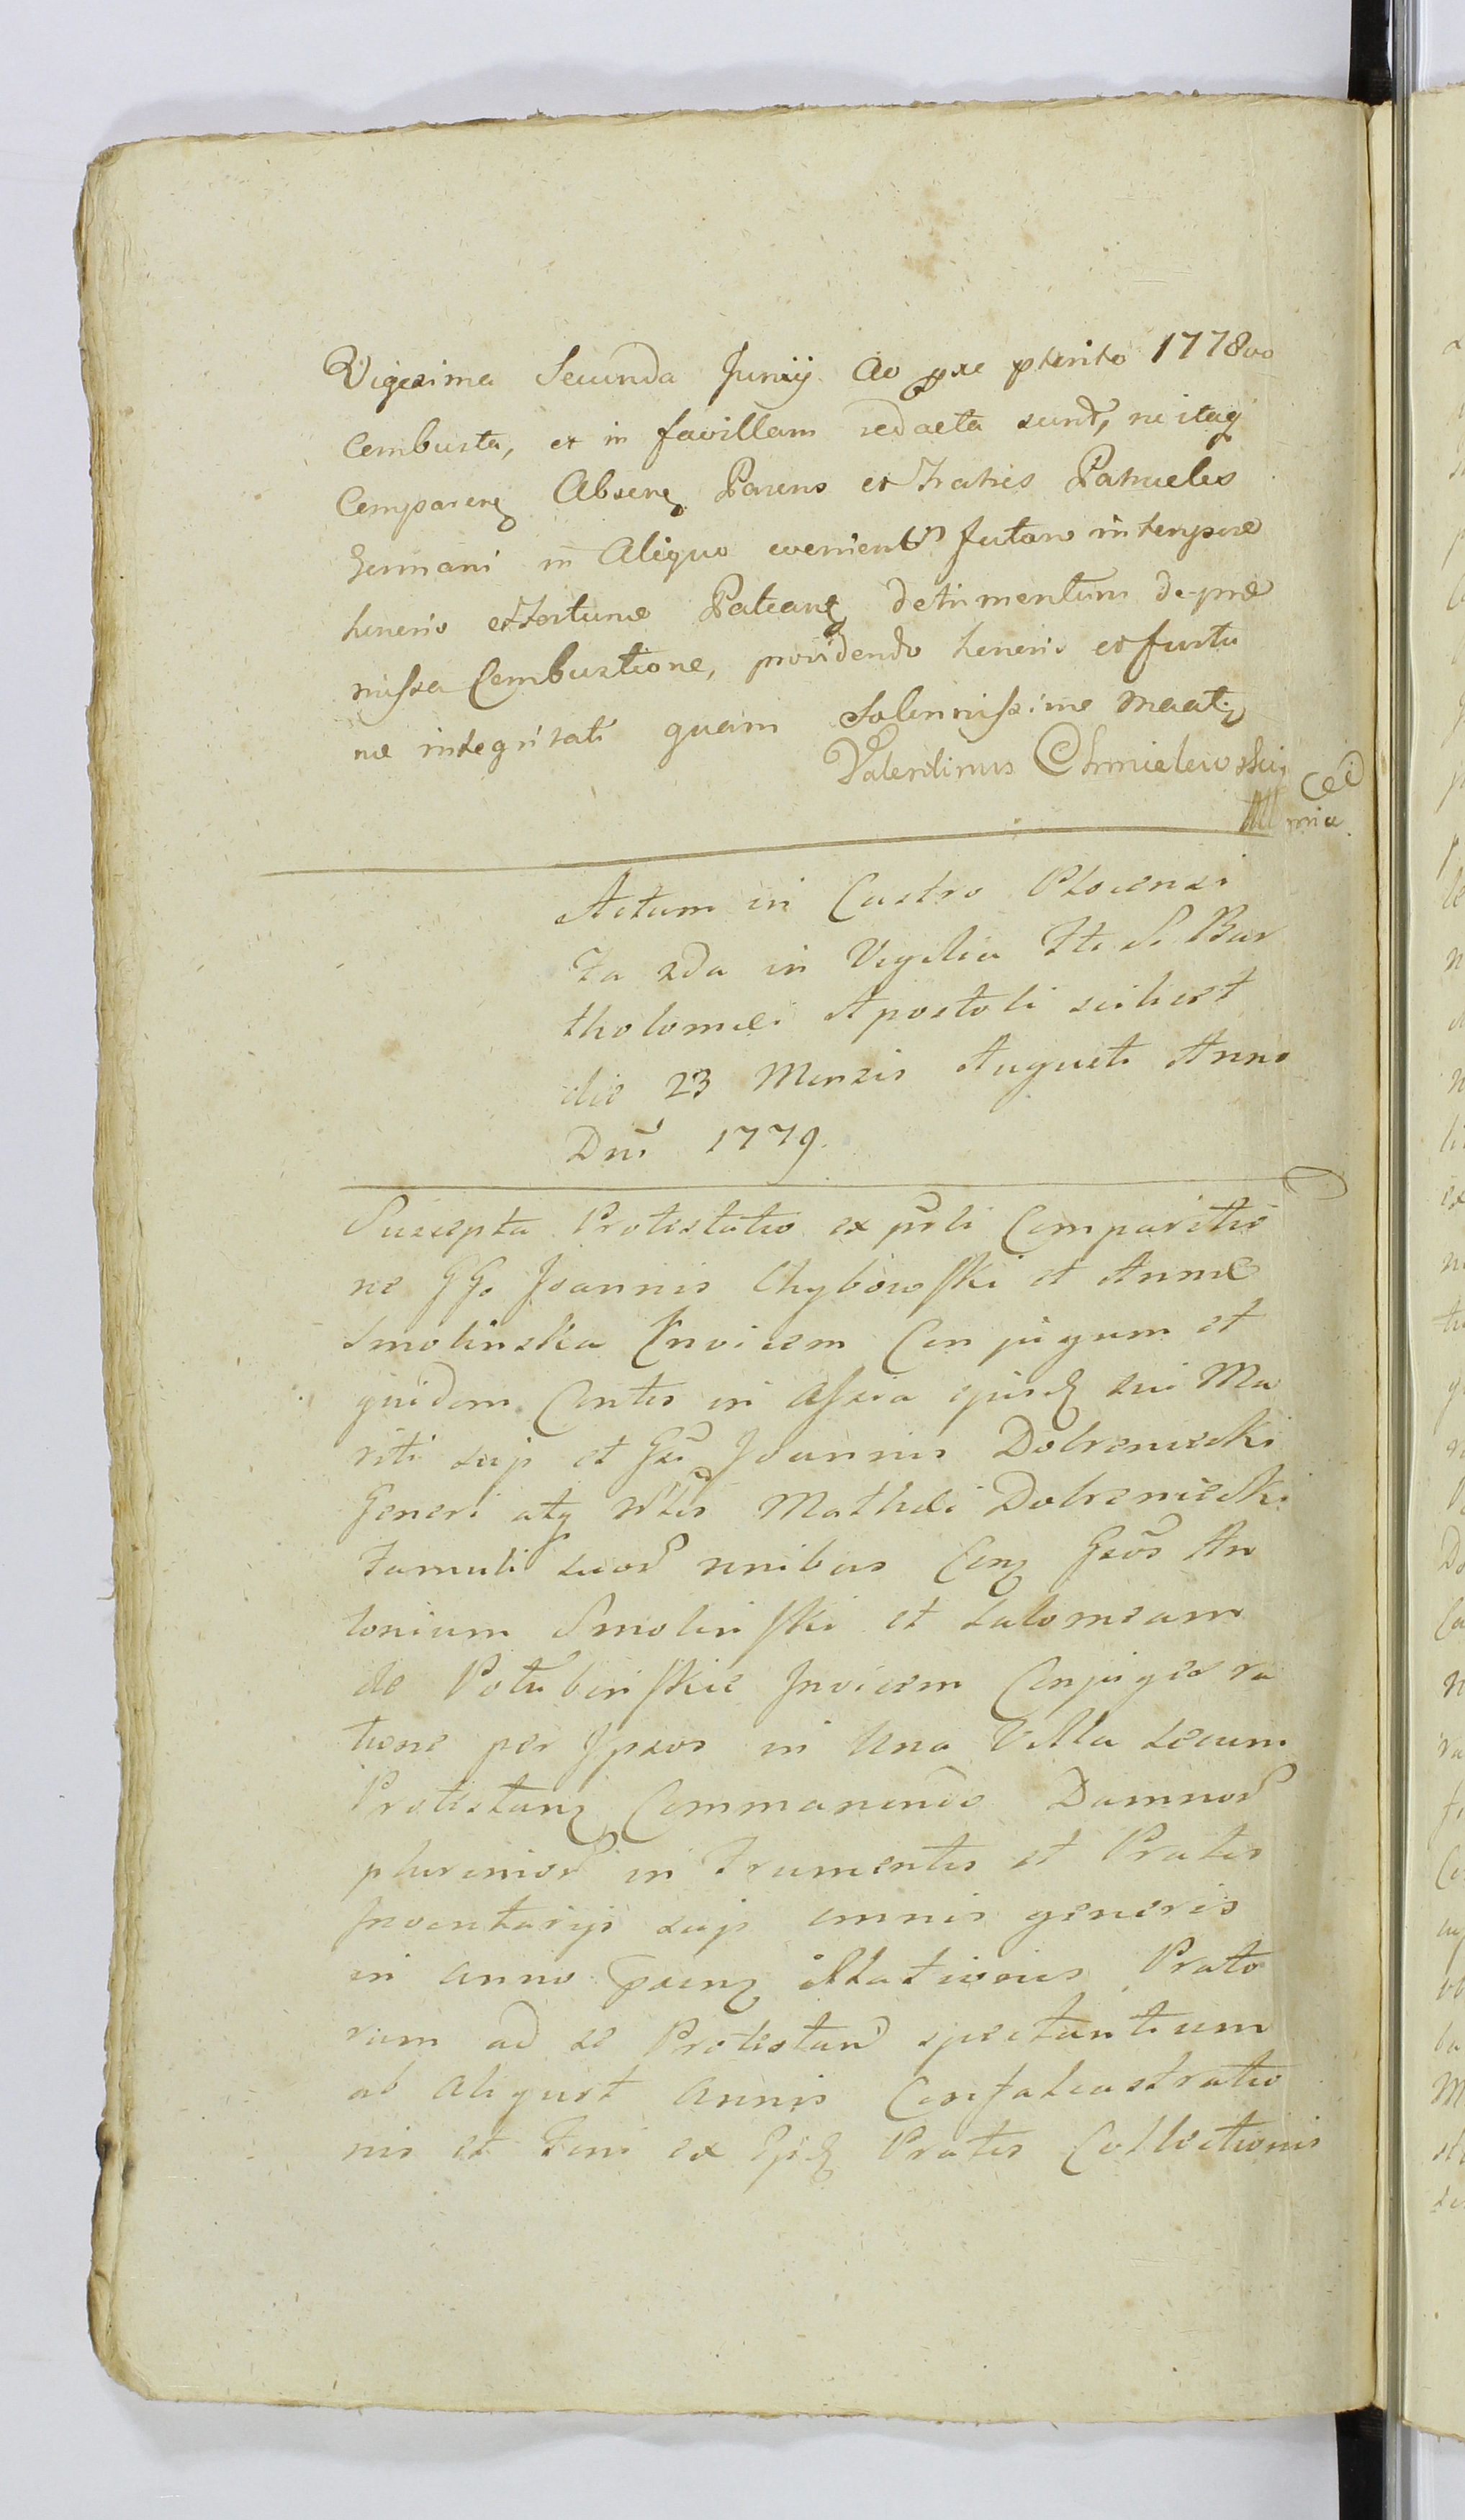 Vigesima Secunda Junij Ao præ pterito 1778vo
Combusta, et in favillam redacta sunt, ne itaq
Comparenq Absenq Parens et Fratres Patrueles
Germani in Aliquo evenient futuro in tempore
honeris et Fortunæ Patianq detrimentum de præ
missa Combustione, providendo honeris et fortu
næ integritati quam Solennissime Mnat
Valentinus Chmielewski
mia
Actum in Castro Plocensi
Fa 2da in Vigilia Sti Bar
tholomæi Apostoli scilicet
die 23 Mensis Augusti Anno
Dni 1779.
Suscepta Protestatio ex prli Comparitio
ne GG. Joannis Chybowski et Annæ
Smolinska Invicem Conjugum et
quidem Contis in assia ejusd sui Ma
riti sup et Gsi Joannis Dobrzeniecki
Generi atq Nblis Mathæi Dobrzeniecki
Famuli suor nnibus Conq Gsos An
tonium Smolinski et Salomeam
de Potubinskie Invicem Conjuges ra
tione per Ipsos in una Villa secum
Protestanq Commanendo Damnor
plurimor in Frumentis et Pratis
Inventarijs sup omnis generis
in anno præsenq illationis Prato
rum ad se Protestand spectantium
ab aliquot Annis Confalcastratio
nis et Feni ex Ijsd Pratis Collectionis